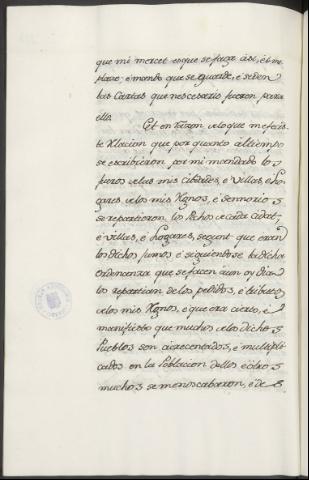 que mi mercet es que se faga asi, é me
plase; é mando que se guarde, é se den
las Cartas que nescesario fueron para
ello
Et en razon, de lo que me fecis
te Relacion que por quanto al tiempo
se escribieron por mi mandado los
fueros de las mis cibdades, é Villas, é Lo
gares, de los mis Regnos, é Sennorios
se repartieron los Pechos de cada cidat,
é Villas, é Logares, segunt que eran
los dichos fumos é seguiendose la dicha
ordenanza que se facen aun oy dia
los repartian de los pedidos, é tributos
de los mis Regnos, é que era cierto, é
manifiesto que muchos de los dichos
Pueblos son acrecentados, é multipli
cados en la Poblacion dellos é otros
muchos se menoscabaron, é de